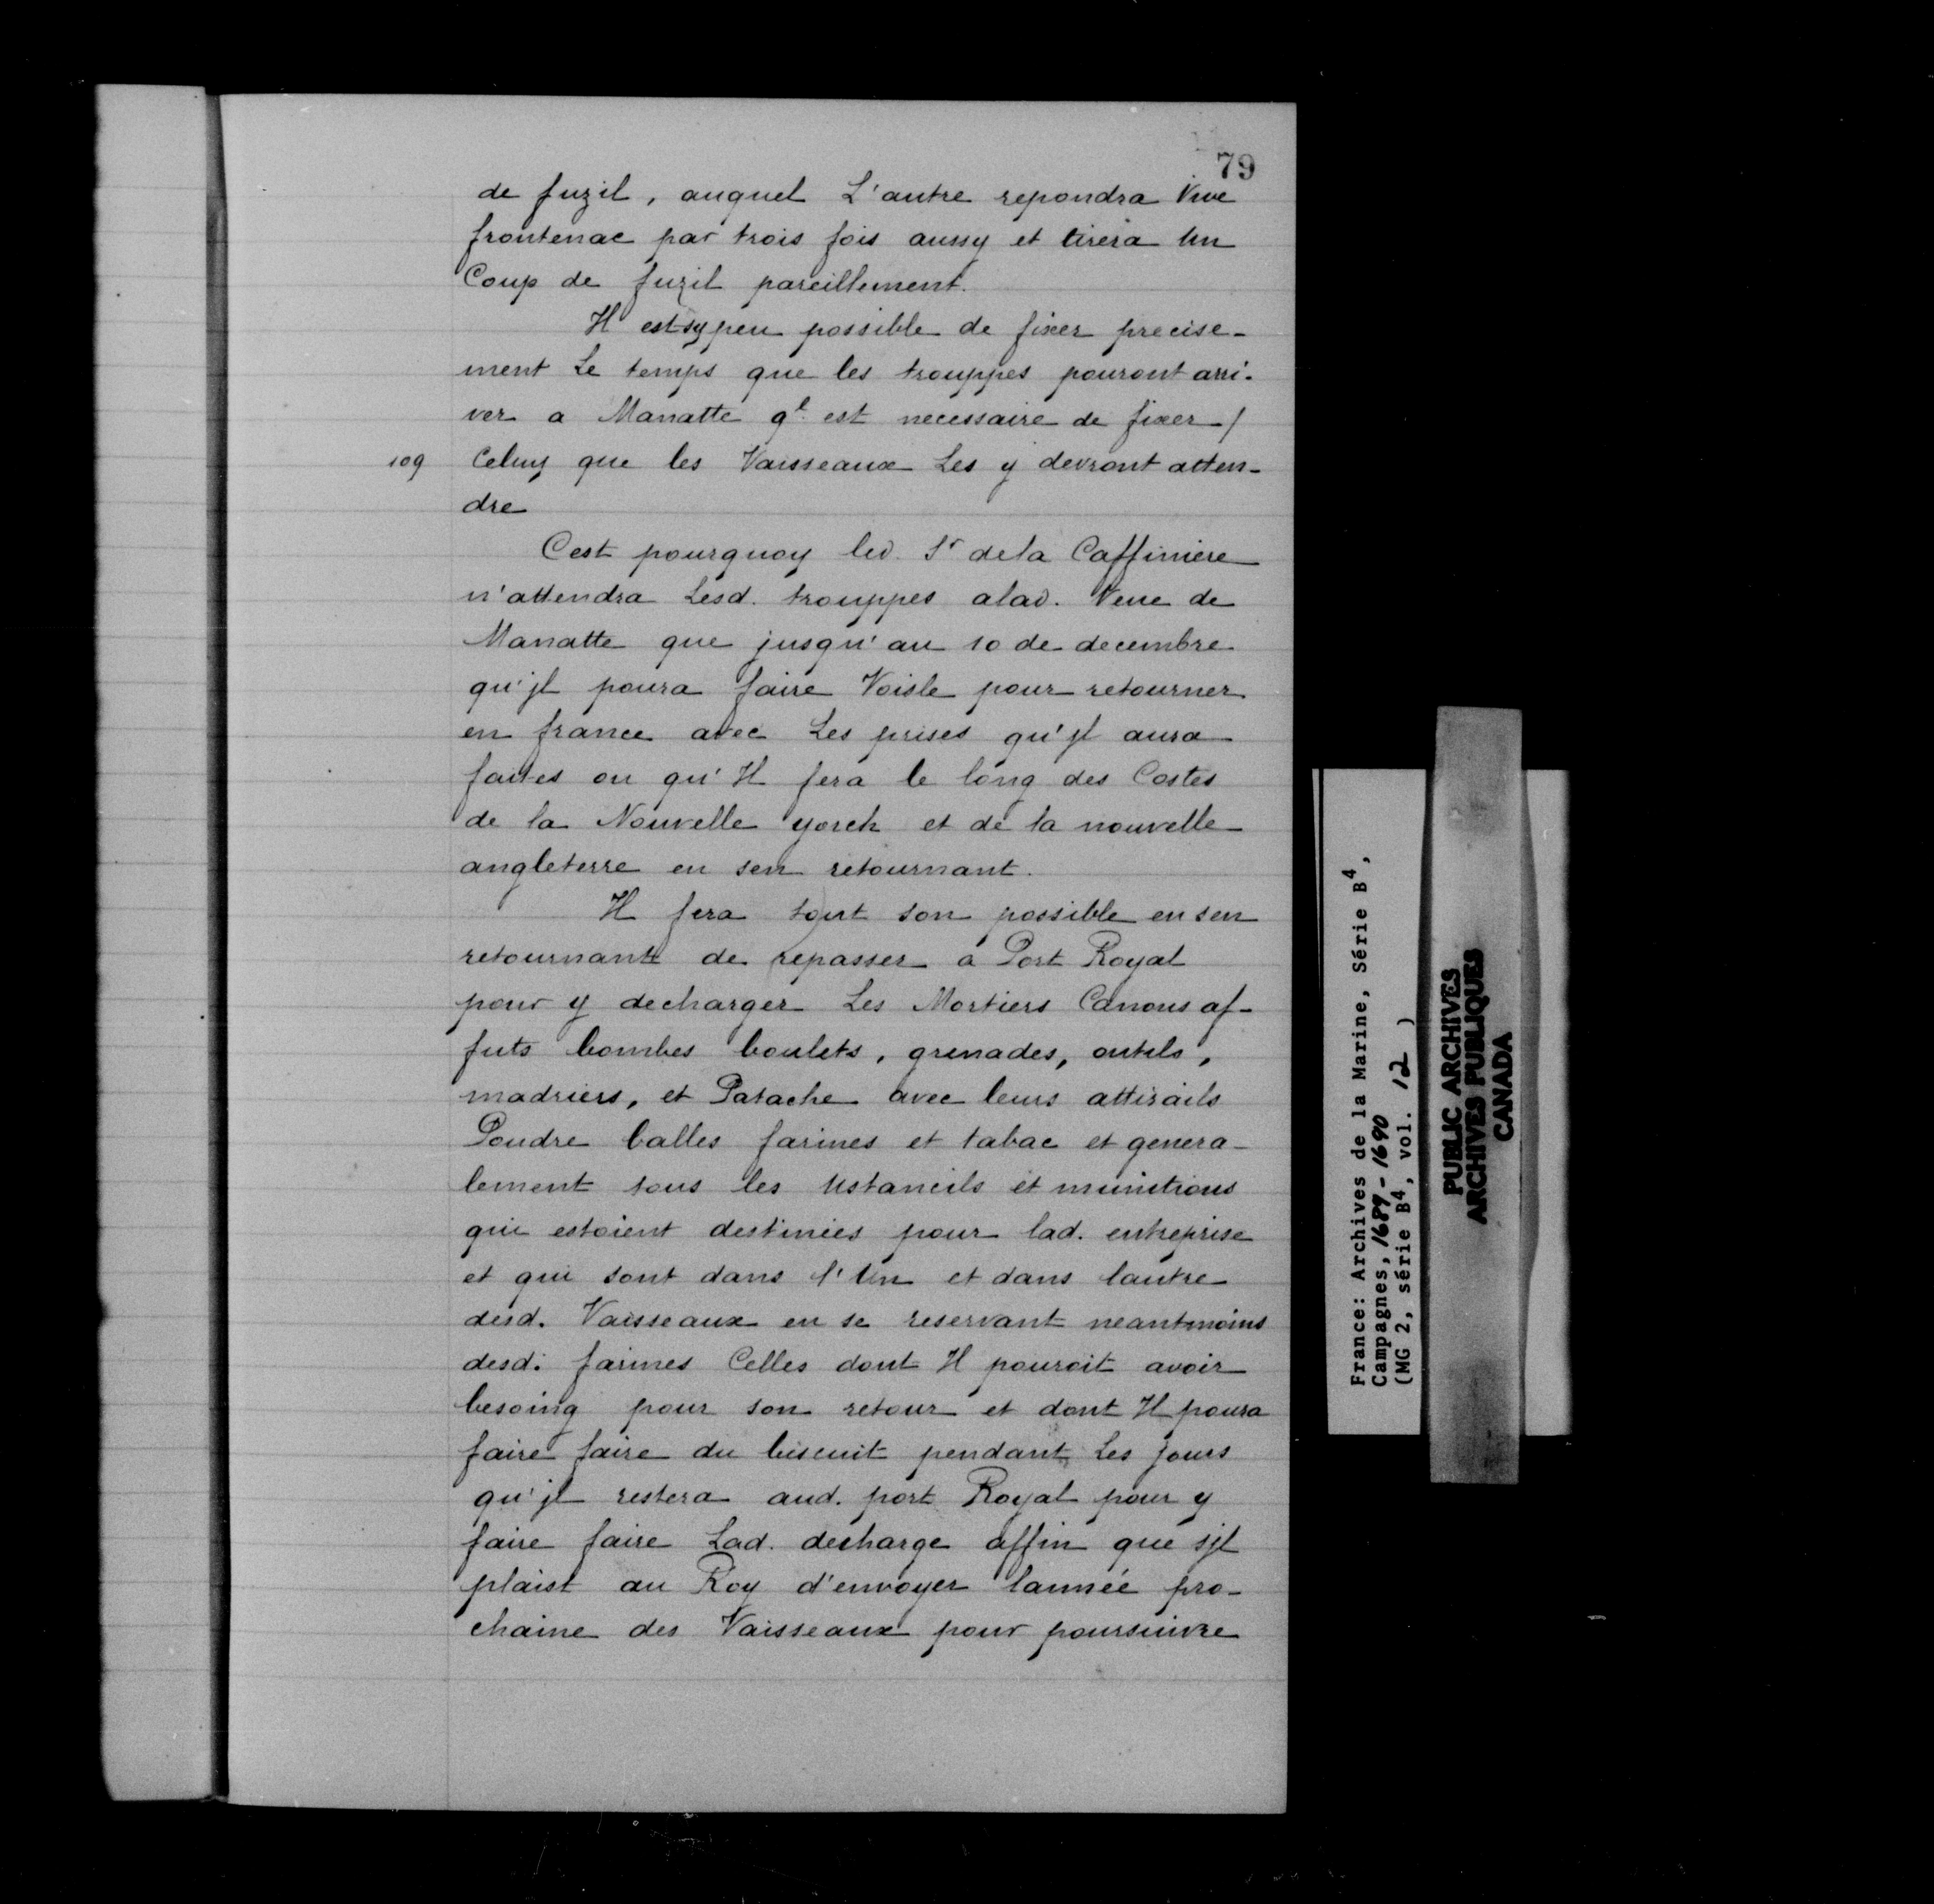 79
de fuzil, auquel L'autre repondra Vive
frontenac par trois fois aussy et tirera Un
Coup de fuzil pareillement.
Il est sy peu possible de fixer precise-
ment Le temps que les trouppes pouront arri-
ver a Manatte ql est necessaire de fixer /
109 Celuy que les Vaisseaux Les y devront atten-
dre
C'est pourquoy led. Sr de la Caffiniere
n'attendra Lesd. trouppes alad. Veue de
Manatte que jusqu'au 10 de decembre
qu'jl poura faire Voisle pour retourner
en france avec Les prises qu'jl aura
faites ou qu'Il fera le long des Costes
de la Nouvelle yorck et de la nouvelle
angleterre en sen retournant.
Il fera tout son possible en sen
retournant de repasser a Port Royal
pour y decharger Les Mortiers Canons af-
futs bombes boulets, grenades, outils,
madriers, et Patache avec leurs attirails
Poudre balles farines et tabac et genera-
lement tous les Ustancils et munitions
qui estoient destinées pour lad. entreprise
et qui sont dans l'Un et dans lautre
desd. Vaisseaux en se reservant neantmoins
desd. farines Celles dont Il pouroit avoir
besoing pour son retour et dont Il poura
faire faire du biscuit pendant Les jours
qu'jl restera aud. port Royal pour y
faire faire Lad. decharge affin que sjl
plaist au Roy d'envoyer lannée pro-
chaine des Vaisseaux pour poursuivre
France: Archives de la Marine, Série B4,
Campagnes, 1689-1690
(MG 2, série B4, vol. 12 )
PUBLIC ARCHIVES
ARCHIVES PUBLIQUES
CANADA